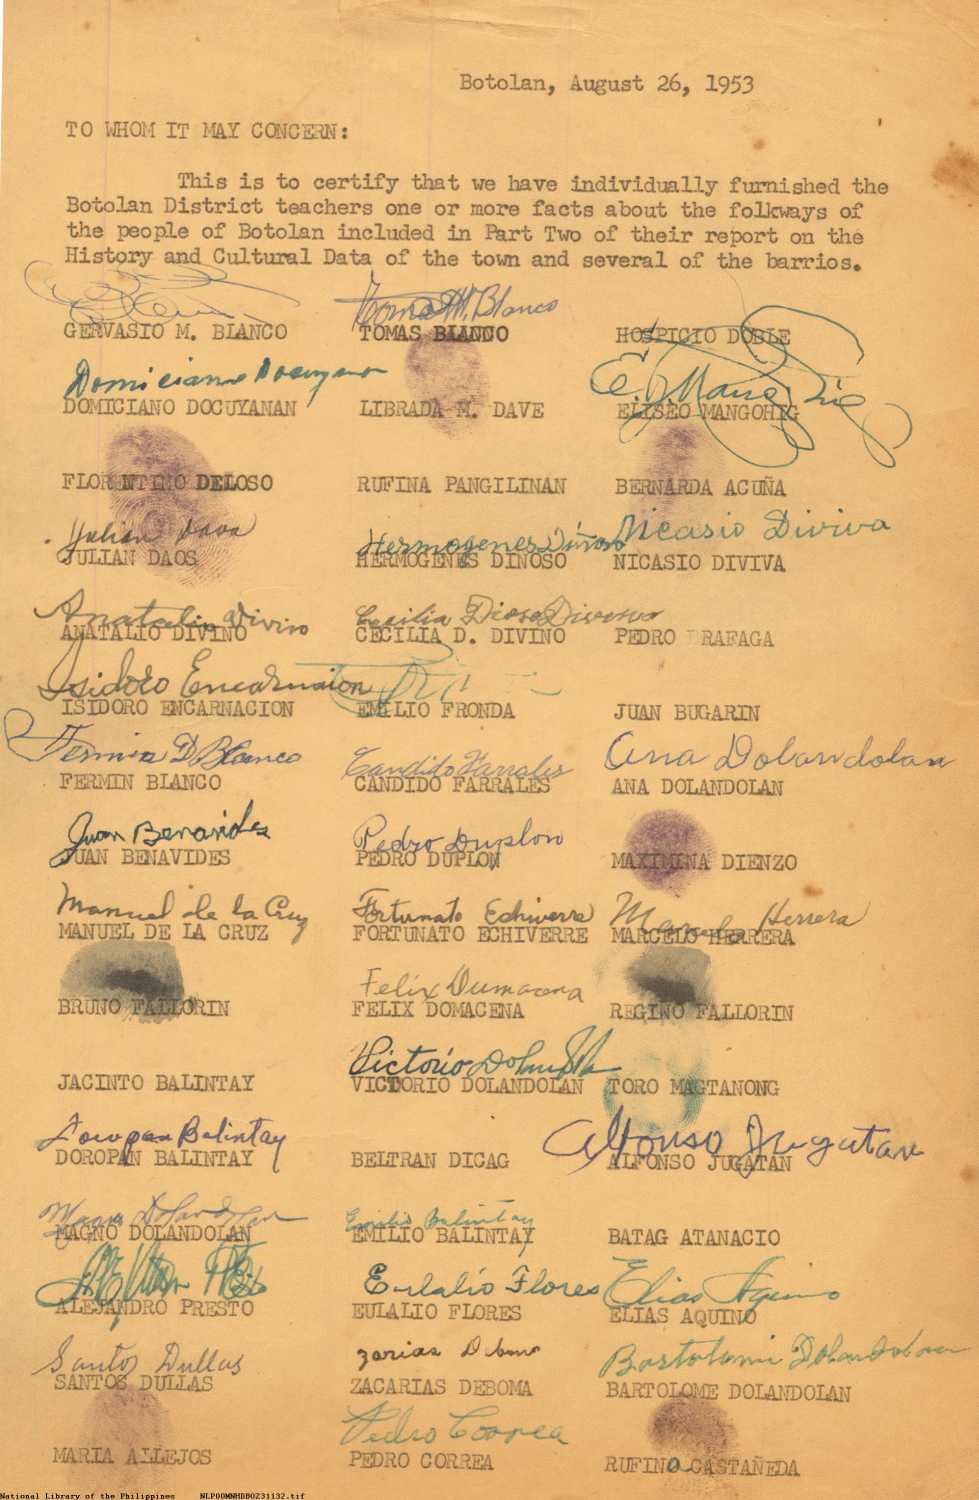 Botolan, August 26, 1953
TO WHOM IT MAY CONCERN:
This is to certify that we have individually furnished the
Botolan District teachers one or more facts about the folkways of
the people of Botolan included in Part Two of their report on the
History and Cultural Data of the town and several of the barrios.
Tomas M. Blanco
GERVASIO M. BLANCO TOMAS BLANCO HOSPICIO DOBLE
Domiciano Docuyanan
DOMICIANO DOCUYANAN LIBRADA M. DAVE ELISEO MANGOHIG
FLORENTINO DELOSO RUFINA PANGILINAN BERNARDA ACUÑA
Julian Hermogenes Diñoso Nicasio Diviva
JULIAN DAOS HERMOGENES DINOSO NICASIO DIVIVA
Anatalio Divino Cecilia
ANATALIO DIVINO CECILIA D. DIVINO PEDRO DRAFAGA
Isidoro Encarnacion
ISIDORO ENCARNACION EMILIO FRONDA JUAN BUGARIN
Fermin D. Blanco Candido Farrales Ana Dolandolan
FERMIN BLANCO CANDIDO FARRALES ANA DOLANDOLAN
Juan Benavides Pedro Duplon
JUAN BENAVIDES PEDRO DUPLON MAXIMINA DIENZO
Manuel de la Cruz Fortunato Echiverre Marcelo Herrera
MANUEL DE LA CRUZ FORTUNATO ECHIVERRE MARCELO HERRERA
Felix Dumacena
BRUNO FALLORIN FELIX DOMACENA REGINO FALLORIN
Victorio
JACINTO BALINTAY VICTORIO DOLANDOLAN TORO MAGTANONG
Doropan Balintay Alfonso Jugatan
DOROPAN BALINTAY BELTRAN DICAG ALFONSO JUGATAN
Magno Dolandolan Emilio Balintay
MAGNO DOLANDOLAN EMILIO BALINTAY BATAG ATANACIO
Eulalio Flores Elias Aquino
ALEJANDRO PRESTO EULALIO FLORES ELIAS AQUINO
Santos Dullas Bartolome Dolandolan
SANTOS DULLAS ZACARIAS DEBOMA BARTOLOME DOLANDOLAN
Pedro Correa
MARIA ALLEJOS PEDRO CORREA RUFINO CASTAÑEDA
National Library of the Philippines NLP00MNHDB0Z31132.tif